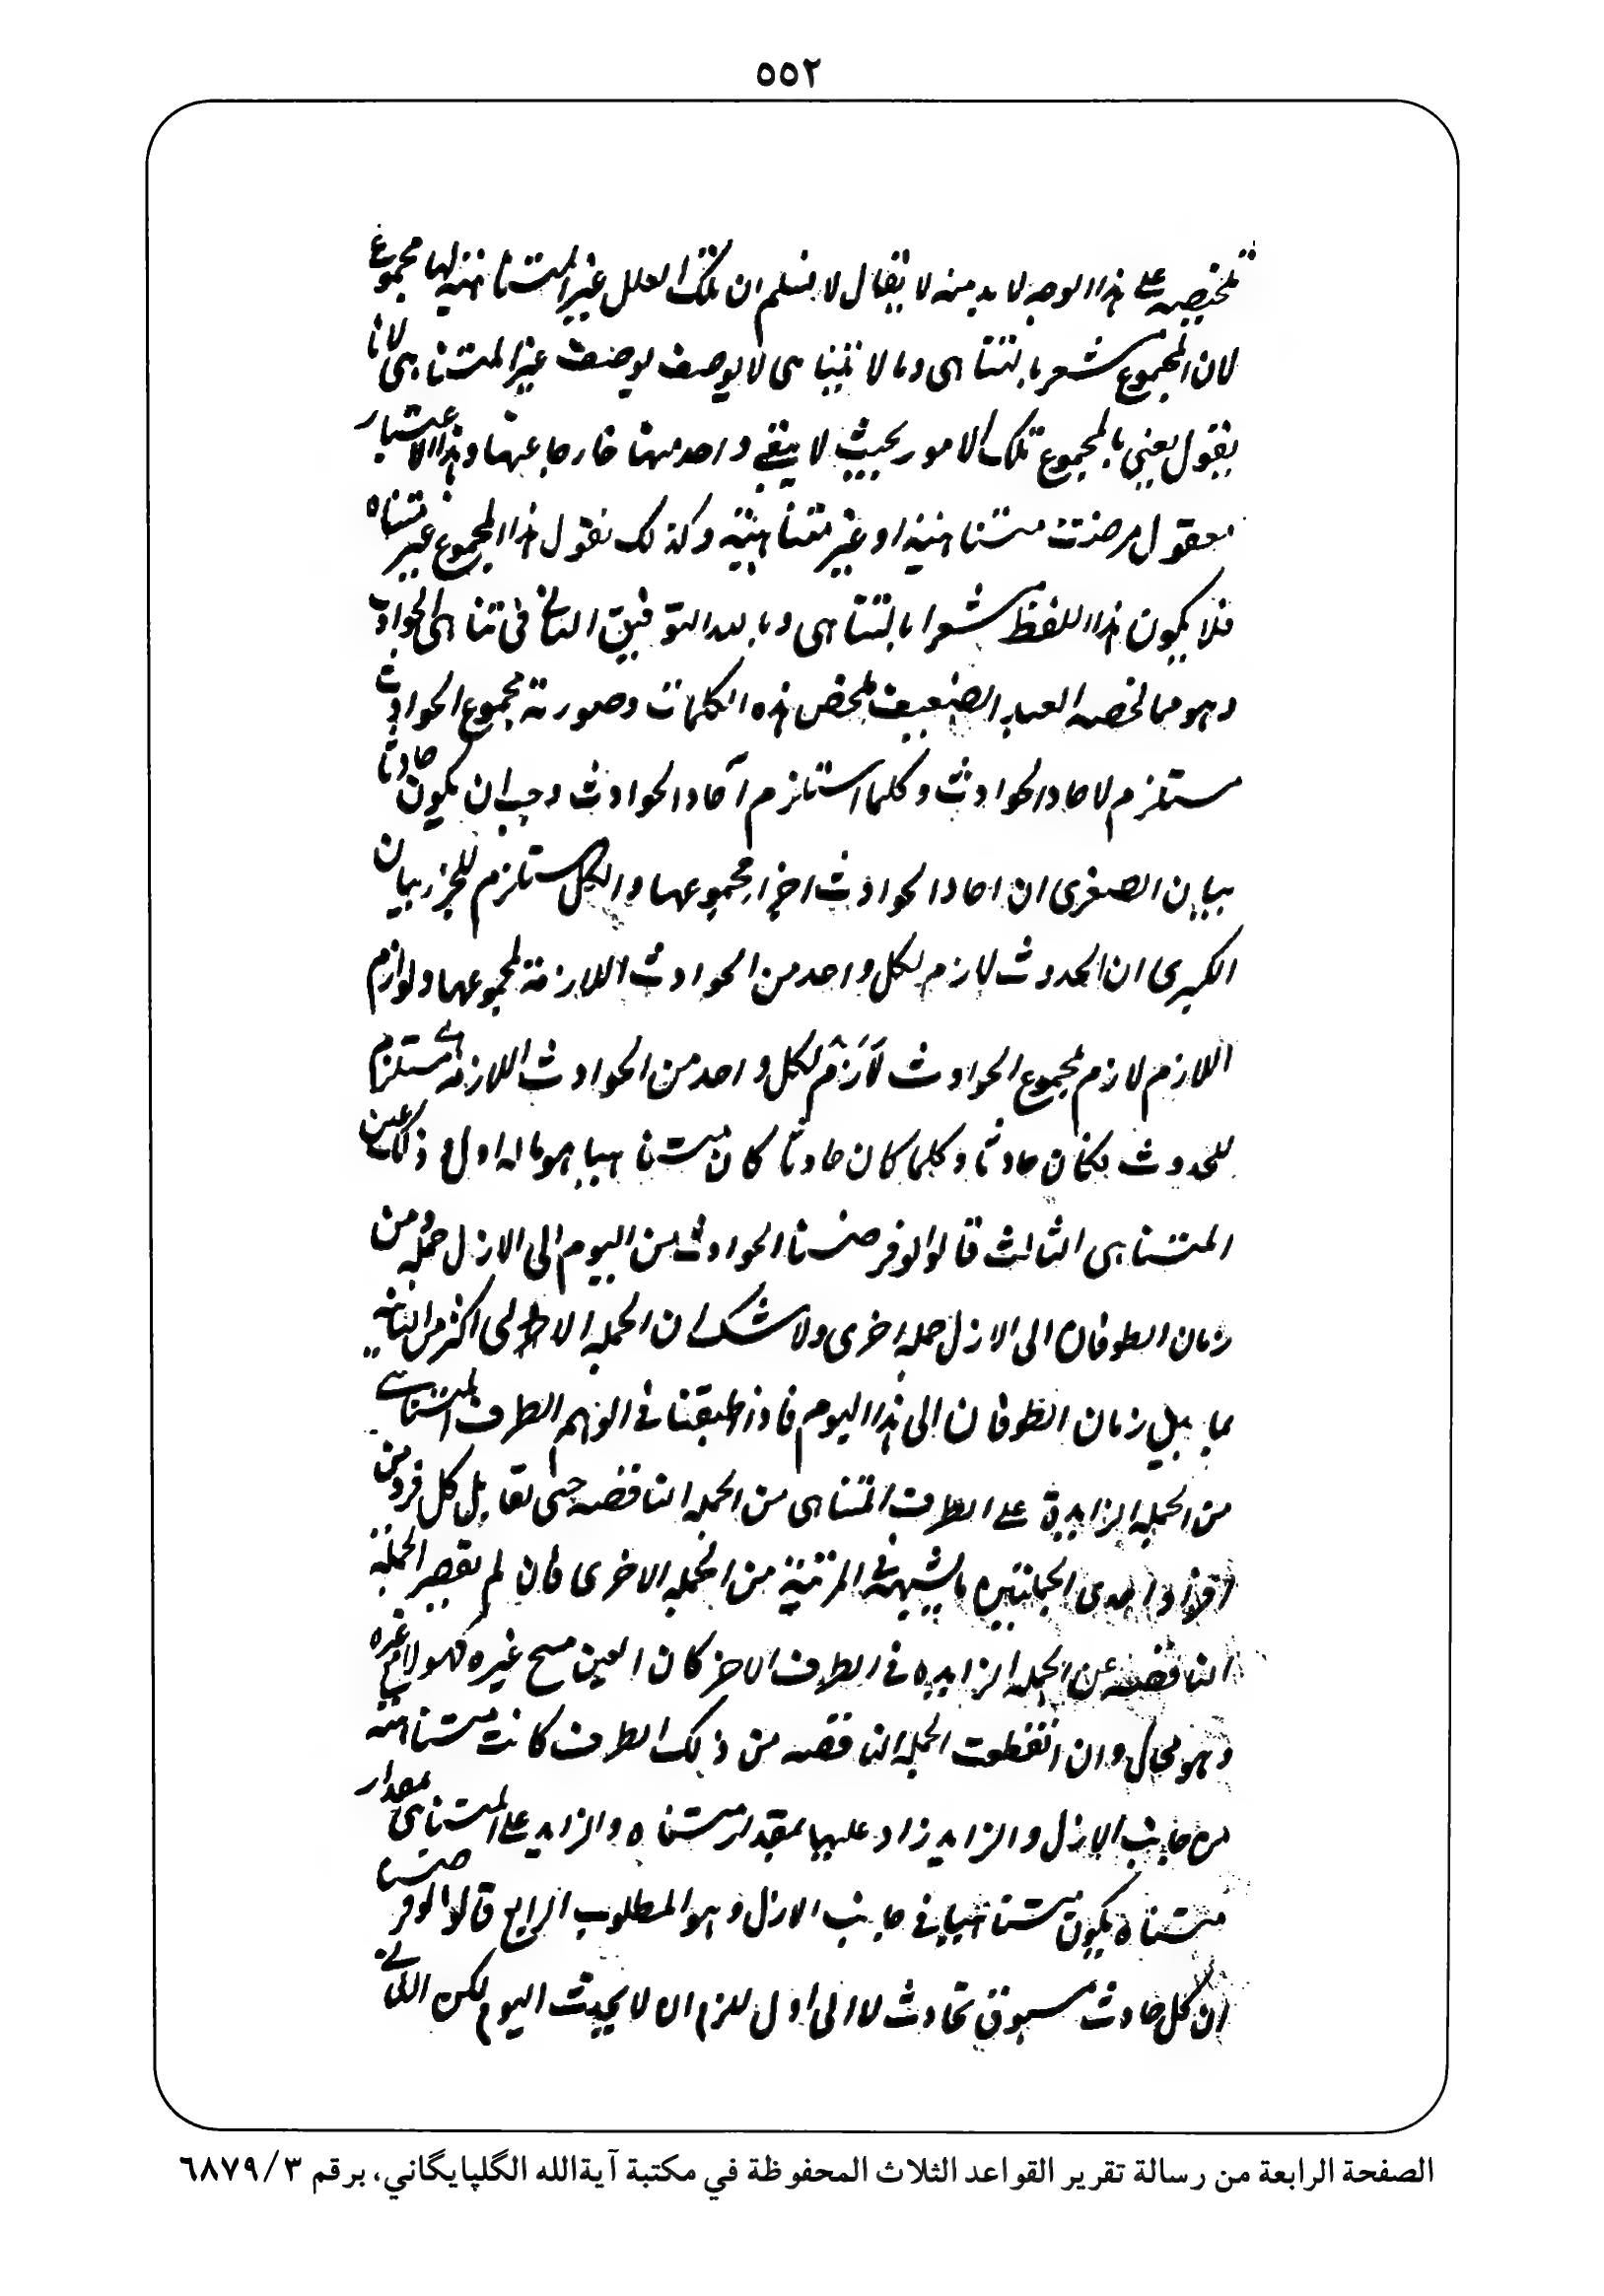 ٥٥٢
تلخيصه على هذا الوجه لا بد منه لا يقال لا نسلم ان تلك العلل غير المتناهية لها مجموع
لان المجموع مشعر بالتناهى وما لا يتناهى لا يوصف بوصف غير المتناهى لانا
نقول نعنى بالمجموع تلك الامور بحيث لا يبقى واحد منها خارجا عنها وهذا الاعتبار
معقول فرضت متناهية او غير متناهية وكذلك نقول هذا المجموع غير متناه
فلا يكون هذا اللفظ مشعرا بالتناهى وبالله التوفيق الثانى فى تناهى الحوادث
وهو مما لخصه العبد الضعيف ملخص هذه الكلمات وصورته مجموع الحوادث
مستلزم لاحاد الحوادث وكلما استلزم آحاد الحوادث وجب ان يكون حادثا
بيان الصغرى ان احاد الحوادث اجزا مجموعها والكل مستلزم للجزء بيان
الكبرى ان الحدوث لازم لكل واحد من الحوادث اللازمة لمجموعها ولوازم
اللازم لازم مجموع الحوادث لازم لكل واحد من الحوادث اللازمة اى مستلزم
للحدوث فكان حادثا وكلما كان حادثا كان متناهيا هو ماله اول وذلك عين
المتناهى الثالث قالوا لو فرضنا الحوادث من اليوم الى الازل جملة ومن
زمان الطوفان الى الازل جملة اخرى ولا شك ان الجملة الاولى اكثر من الثانية
بما بين زمان الطوفان الى هذا اليوم فاذا طبقنا فى الوهم الطرف المتناهى
من الجملة الزايدة على الطرف المتناهى من الجملة الناقصه حتى تقابل كل فرد من
افراد احدى الجانبين ما يشبهه فى المرتبة من الجملة الاخرى فان لم تقصر الجملة
الناقصه عن الجملة الزايده فى الطرف الاخر كان العين مع غيره كهو لا مع غيره
وهو محال وان انقطعت الجملة الناقصه من ذلك الطرف كانت متناهية
من جانب الازل والزايد زاد عليها بمقدار متناه والزايد على المتناهى بمقدار
متناه يكون متناهيا فى جانب الازل وهو المطلوب الرابع قالوا لو فرضنا
ان كل حادث مسبوق بحادث لا الى اول للزم ان لا يحدث اليوم لكن التالى
الصفحة الرابعة من رسالة تقرير القواعد الثلاث المحفوظة في مكتبة آيةالله الگلپايگاني، برقم ٦٨٧٩/٣